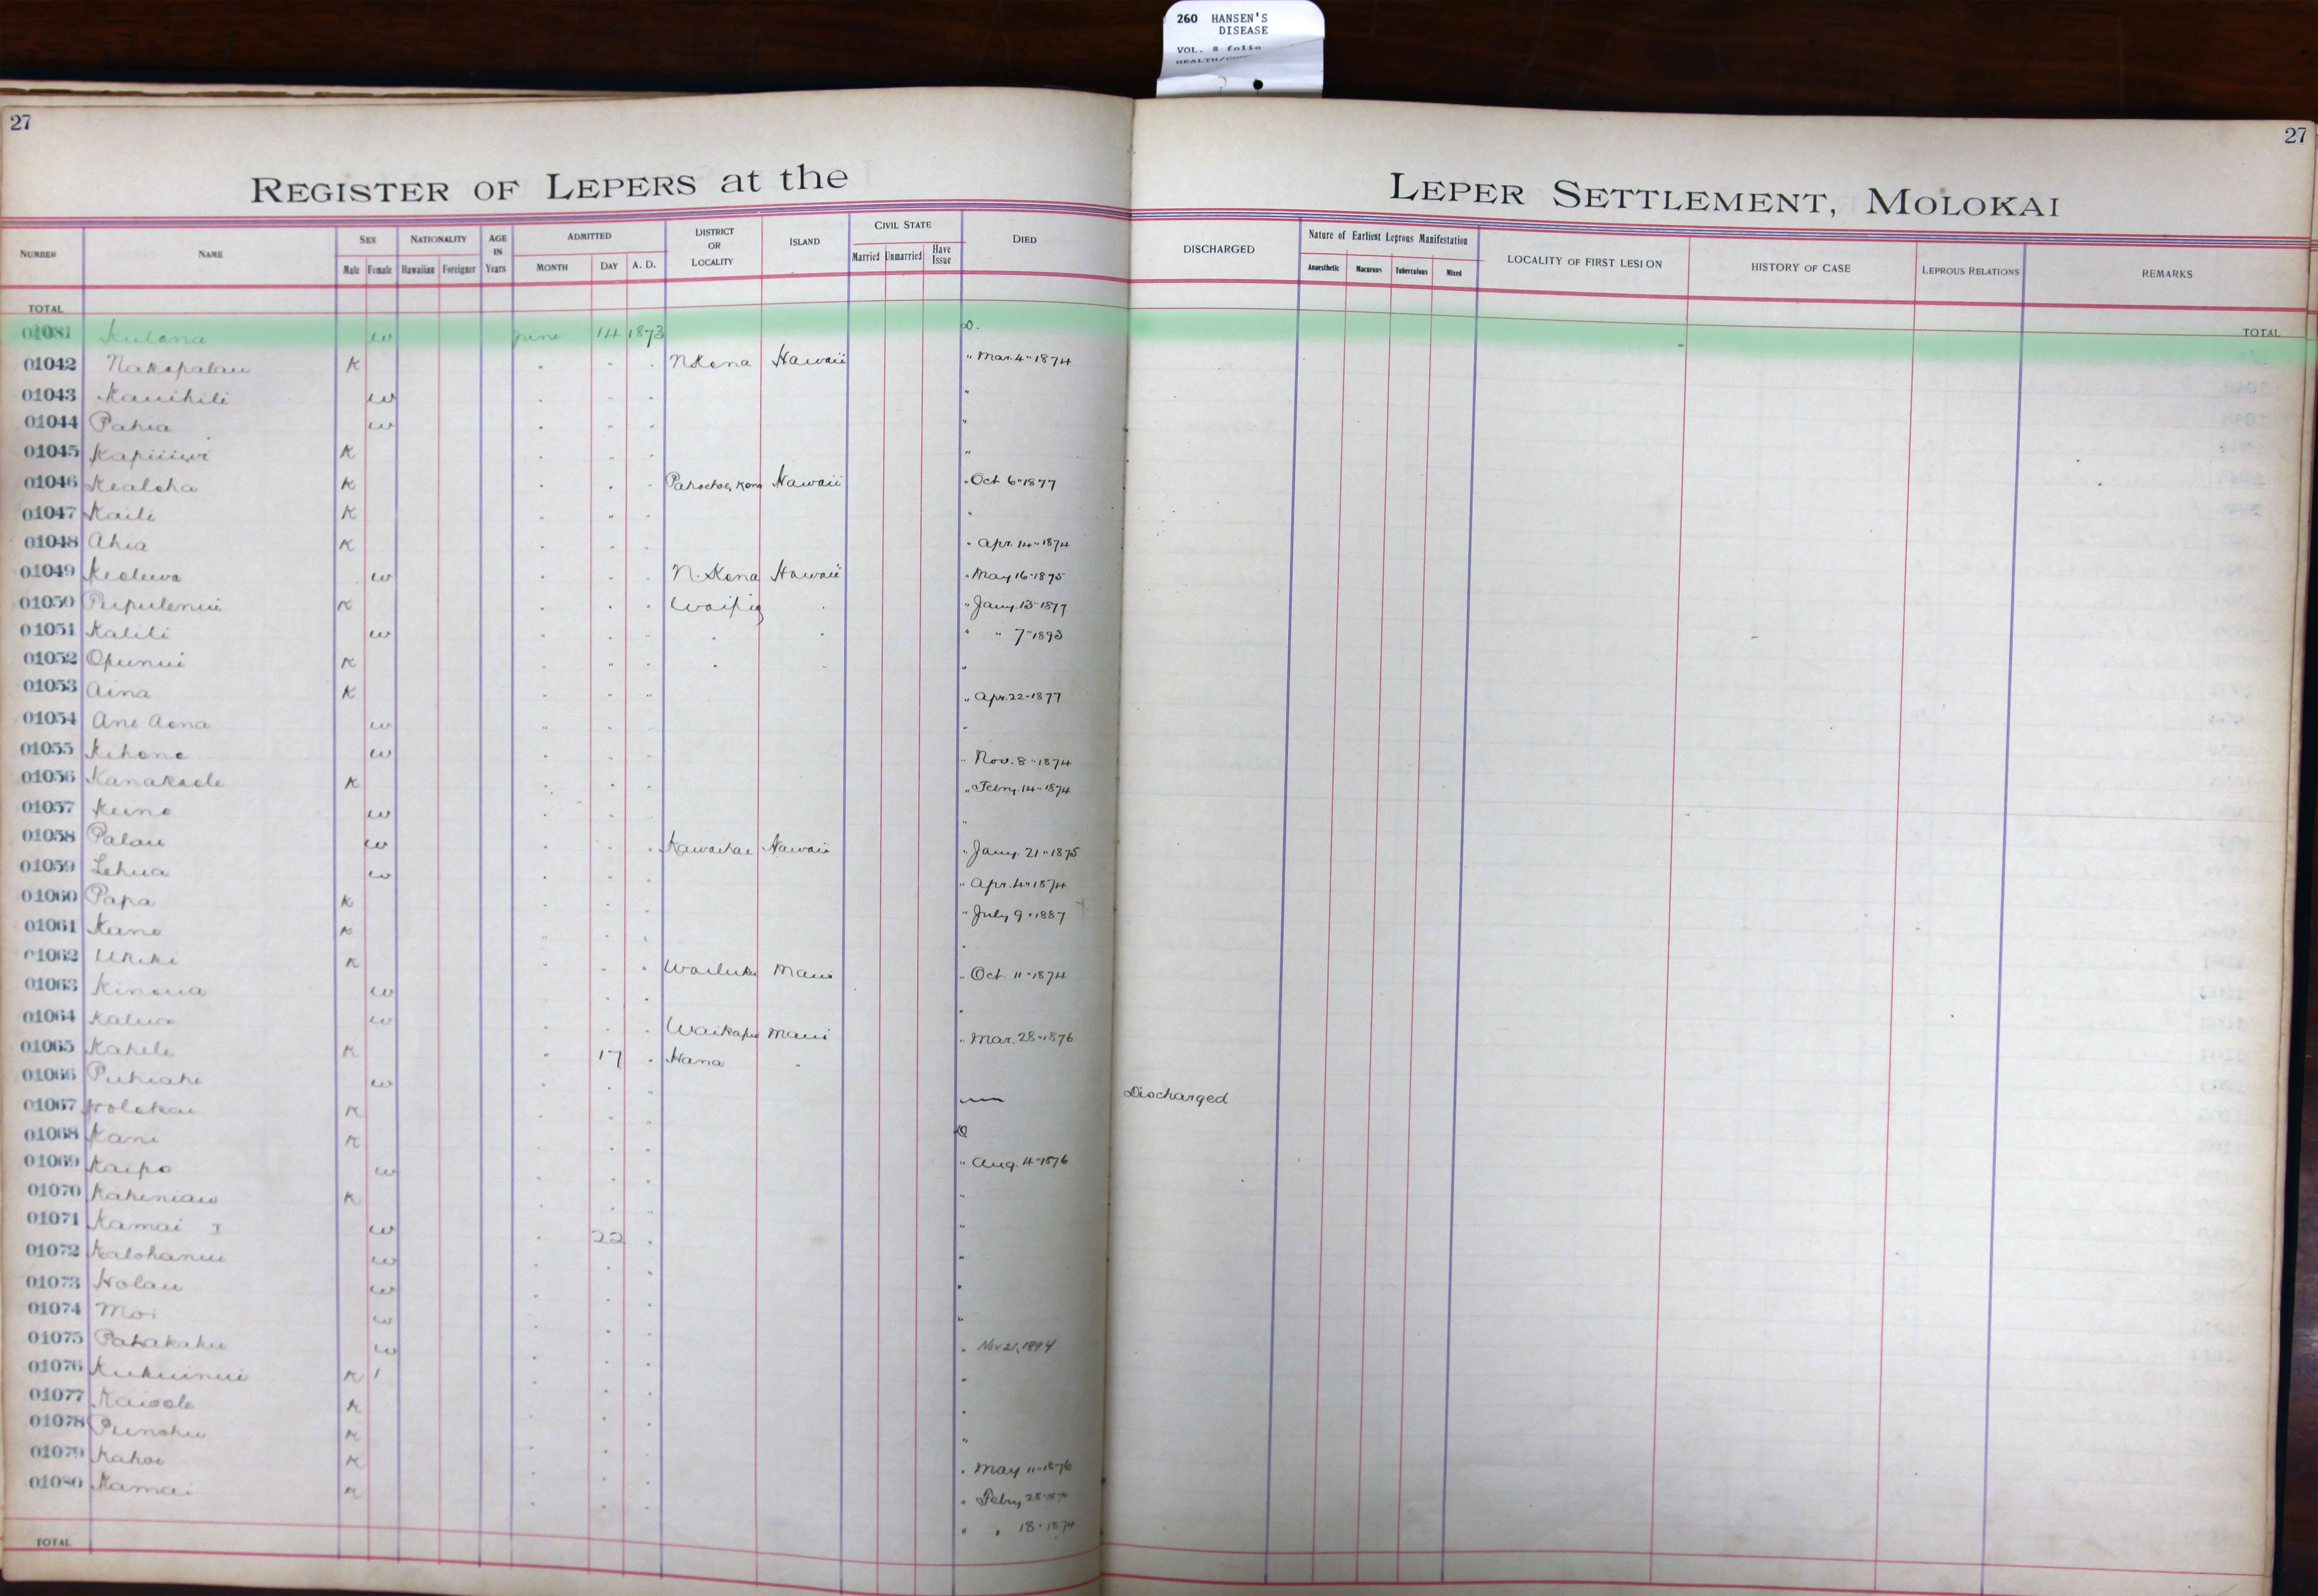 260 HANSEN'S
DISEASE
VOL. 8 folio
27
27
REGISTER OF LEPERS at the
LEPER SETTLEMENT, MOLOKAI
NUMBER NAME SEX Male Female NATIONALITY Hawaiian Foreigner AGE IN Years ADMITTED MONTH DAY A. D. DISTRICT OR LOCALITY ISLAND CIVIL STATE Married Unmarried Have Issue DIED DISCHARGED Nature of Earliest Leprous Manifestation Anaesthetic Macurous Tuberculous Mixed LOCALITY OF FIRST LESION HISTORY OF CASE LEPROUS RELATIONS REMARKS
TOTAL
TOTAL
Kulana w June 14 1873 D.
01042 Nakapalau K " " " N Kona Hawaii " Mar. 4" 1874
01043 Kauihili w " " " "
01044 Pahia w " " " "
01045 K " " " "
01046 Kealoha K " " " Hawaii " Oct 6" 1877
01047 Kaili K " " " "
01048 Ahia K " " " " Apr. 14" 1874
01049 Keoluwa w " " " N. Kona Hawaii " May 16" 1875
01050 Pupulenui K " " " Waipio " " Jany. 13" 1877
01051 Kalili w " " " " " " " 7" 1893
01052 Opunui K " " " " " "
01053 Aina K " " " " Apr. 22" 1877
01054 Ane Aona w " " " "
01055 Kihene w " " " " Nov. 8" 1874
01056 Kanakaole K " " " " Febry. 14" 1874
01057 Keino w " " " "
01058 Palau w " " " Kawaihae Hawaii " Jany. 21" 1875
01059 Lehua w " " " " Apr. 4" 1874
01060 Papa K " " " " July 9" 1887
01061 Kane K " " " "
01062 Ukeke K " " " Wailuku Maui " Oct. 11" 1874
01063 Kinoua w " " " "
01064 Kalua w " " " Waikapu Maui " Mar. 28" 1876
01065 Kahele K " 17 " Hana "
01066 Puhiahi w " " " Discharged
01067 Holokai K " " " D
01068 Kani K " " " " Aug. 4" 1876
01069 Kaipo w " " " "
01070 Kahiniau K " " " "
01071 Kamai I w " 22 " "
01072 Kalohanui w " " " "
01073 Holau w " " " "
01074 Moi w " " " " Nov 21, 1894
01075 Pahakaku w " " " "
01076 Kukuinui K 1 " " " "
01077 Kaiaole K " " " "
01078 Punohu K " " " " May 11" 1876
01079 Kahoe K " " " " Febry 28"
01080 Kamai K " " " " " 18" 1874
TOTAL